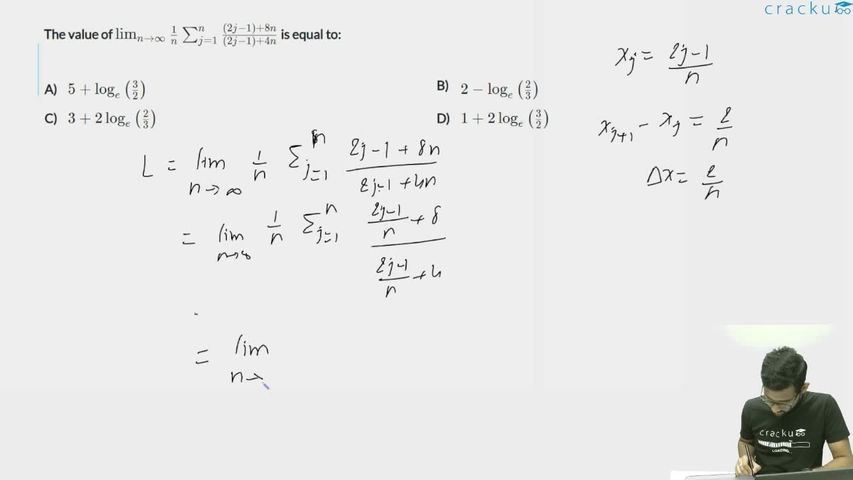 cracku
The value of lim_{n→∞} \frac{1}{n} \sum_{j=1}^{n} \frac{(2j-1)+8n}{(2j-1)+4n} is equal to:
A) 5 + log_e (\frac{3}{2})
B) 2 − log_e (\frac{2}{3})
C) 3 + 2 log_e (\frac{2}{3})
D) 1 + 2 log_e (\frac{3}{2})
L = lim_{n→∞} \frac{1}{n} Σ_{j=1}^{n} \frac{2j-1+8n}{2j-1+4n}
= lim_{n→∞} \frac{1}{n} Σ_{j=1}^{n} \frac{\frac{2j-1}{n}+8}{\frac{2j-1}{n}+4}
= lim_{n→}
x_j = \frac{2j-1}{n}
x_{j+1} − x_j = \frac{2}{n}
Δx = \frac{2}{n}
cracku
LOADING